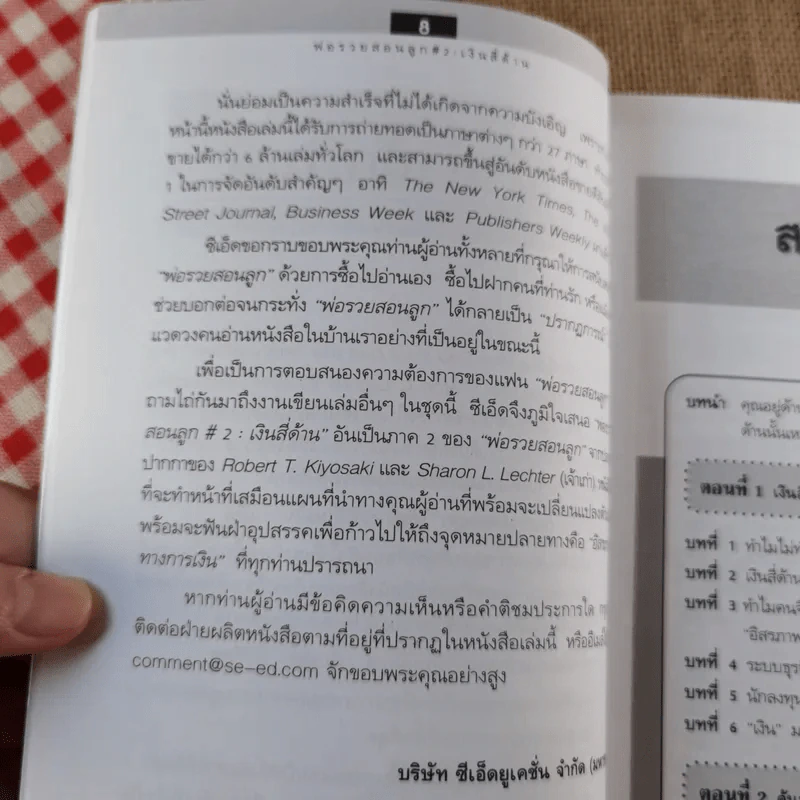 8
พ่อรวยสอนลูก # 2 : เงินสี่ด้าน
นั่นย่อมเป็นความสำเร็จที่ไม่ได้เกิดจากความบังเอิญ
หน้านี้หนังสือเล่มนี้ได้รับการถ่ายทอดเป็นภาษาต่างๆ กว่า 27 ภาษา
ขายได้กว่า 6 ล้านเล่มทั่วโลก และสามารถขึ้นสู่อันดับหนังสือขายดี
1 ในการจัดอันดับสำคัญๆ อาทิ The New York Times, The
Street Journal, Business Week และ Publishers Weekly
ซีเอ็ดขอกราบขอบพระคุณท่านผู้อ่านทั้งหลายที่กรุณาให้การ
"พ่อรวยสอนลูก" ด้วยการซื้อไปอ่านเอง ซื้อไปฝากคนที่ท่านรัก หรือ
ช่วยบอกต่อจนกระทั่ง "พ่อรวยสอนลูก" ได้กลายเป็น "ปรากฏการณ์"
แวดวงคนอ่านหนังสือในบ้านเราอย่างที่เป็นอยู่ในขณะนี้
เพื่อเป็นการตอบสนองความต้องการของแฟน "พ่อรวยสอนลูก"
ถามไถ่กันมาถึงงานเขียนเล่มอื่นๆ ในชุดนี้ ซีเอ็ดจึงภูมิใจเสนอ
สอนลูก # 2 : เงินสี่ด้าน" อันเป็นภาค 2 ของ "พ่อรวยสอนลูก"
ปากกาของ Robert T. Kiyosaki และ Sharon L. Lechter (เจ้าเก่า)
ที่จะทำหน้าที่เสมือนแผนที่นำทางคุณผู้อ่านที่พร้อมจะเปลี่ยนแปลง
พร้อมจะฟันฝ่าอุปสรรคเพื่อก้าวไปให้ถึงจุดหมายปลายทางคือ "อิสร
ทางการเงิน" ที่ทุกท่านปรารถนา
หากท่านผู้อ่านมีข้อคิดความเห็นหรือคำติชมประการใด
ติดต่อฝ่ายผลิตหนังสือตามที่อยู่ที่ปรากฏในหนังสือเล่มนี้ หรือ
comment@se-ed.com จักขอบพระคุณอย่างสูง
บริษัท ซีเอ็ดยูเคชั่น จำกัด
ส
บทนำ คุณอยู่ด้า
ด้านนั้นเห
ตอนที่ 1 เงินสี
บทที่ 1 ทำไมไม่ท
บทที่ 2 เงินสี่ด้าน
บทที่ 3 ทำไมคนจึ
"อิสรภาพ
บทที่ 4 ระบบธุร
บทที่ 5 นักลงทุน
บทที่ 6 "เงิน" ม
ตอนที่ 2